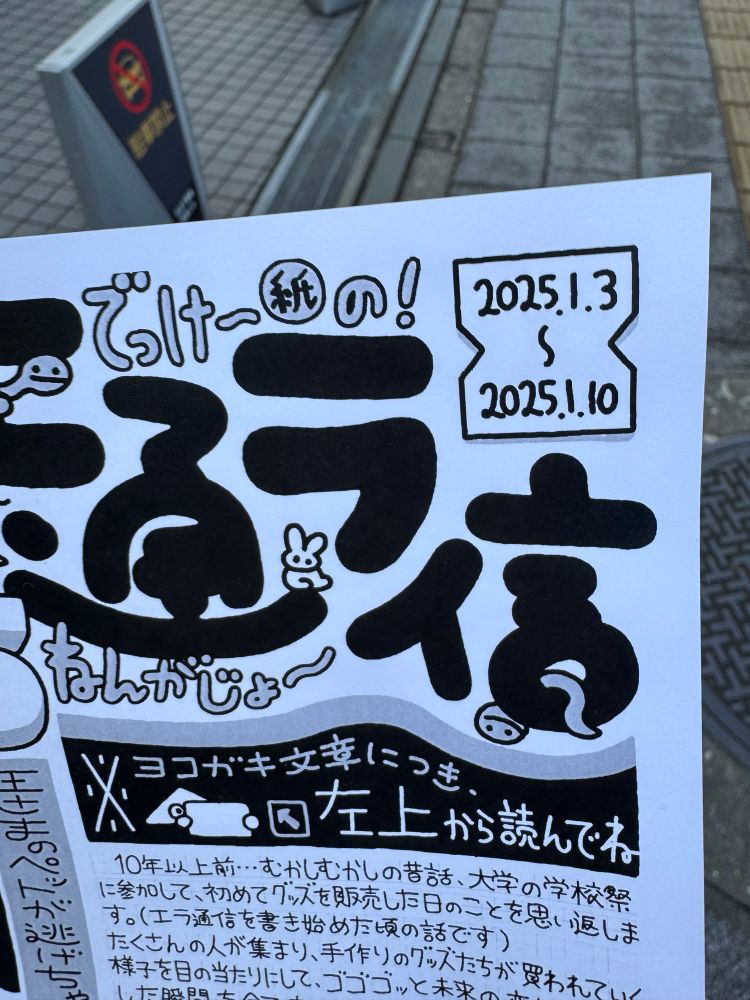 でっけー紙の!
2025.1.3
~
2025.1.10
エラ通信
ねんがじょー
※ヨコガキ文章につき、
左上から読んでね
10年以上前…むかしむかしの昔話、大学の学校祭
に参加して、初めてグッズを販売した日のことを思い返しま
す。(エラ通信を書き始めた頃の話です)
たくさんの人が集まり、手作りのグッズたちが買われていく
様子を目の当たりにして、ゴゴゴッと未来の
した瞬間を
王さまのヘビが逃げちゃ